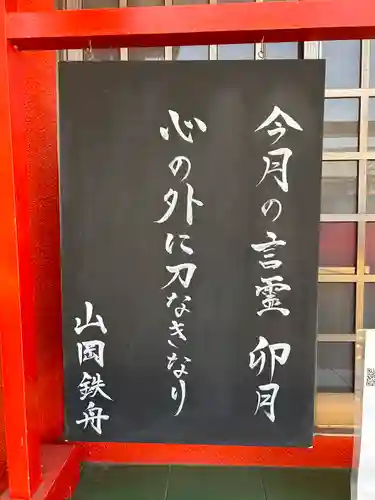 今月の言霊 卯月
心の外に刀なきなり
山岡鉄舟